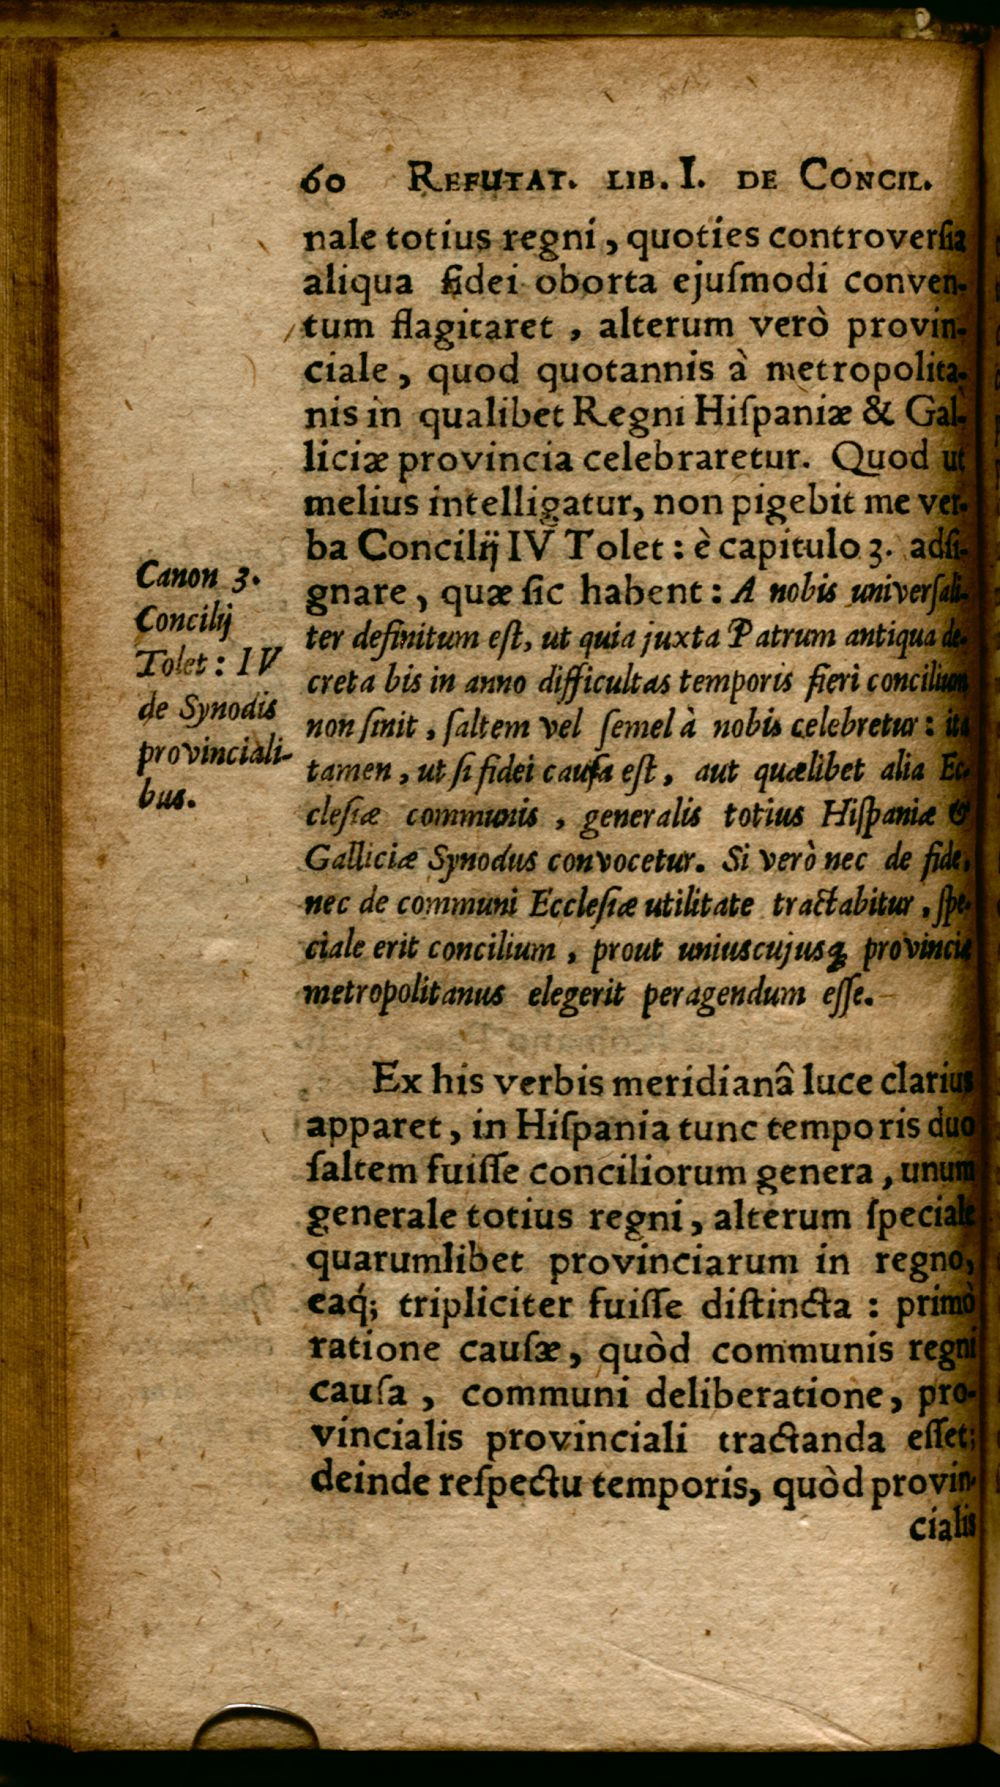 60 REFUTAT. LIB. I. DE CONCIL.
nale totius regni, quoties controverſia
aliqua fidei oborta ejuſmodi conven-
tum flagitaret, alterum verò provin-
ciale, quod quotannis à metropolita-
nis in qualibet Regni Hiſpaniæ & Gal-
liciæ provincia celebraretur. Quod ut
melius intelligatur, non pigebit me ver-
ba Concilij IV Tolet: è capitulo 3. adſi-
gnare, quæ ſic habent: A nobis univerſali-
ter definitum eſt, ut quia juxta Patrum antiqua de-
creta bis in anno difficultas temporis fieri concilium
non ſinit, ſaltem vel ſemel à nobis celebretur: ita
tamen, ut ſi fidei cauſa eſt, aut quælibet alia Ec-
cleſiæ communis, generalis totius Hiſpaniæ &
Galliciæ Synodus convocetur. Si verò nec de fide,
nec de communi Eccleſiæ utilitate tractabitur, ſpe-
ciale erit concilium, prout uniuscujusq; provinciæ
metropolitanus elegerit peragendum eſſe.
Canon 3.
Concilij
Tolet: IV
de Synodis
provinciali-
bus.
Ex his verbis meridianâ luce clarius
apparet, in Hiſpania tunc temporis duo
ſaltem fuiſſe conciliorum genera, unum
generale totius regni, alterum ſpeciale
quarumlibet provinciarum in regno,
eaq́; tripliciter fuiſſe diſtincta: primò
ratione cauſæ, quòd communis regni
cauſa, communi deliberatione, pro-
vincialis provinciali tractanda eſſet;
deinde reſpectu temporis, quòd provin-
cialis